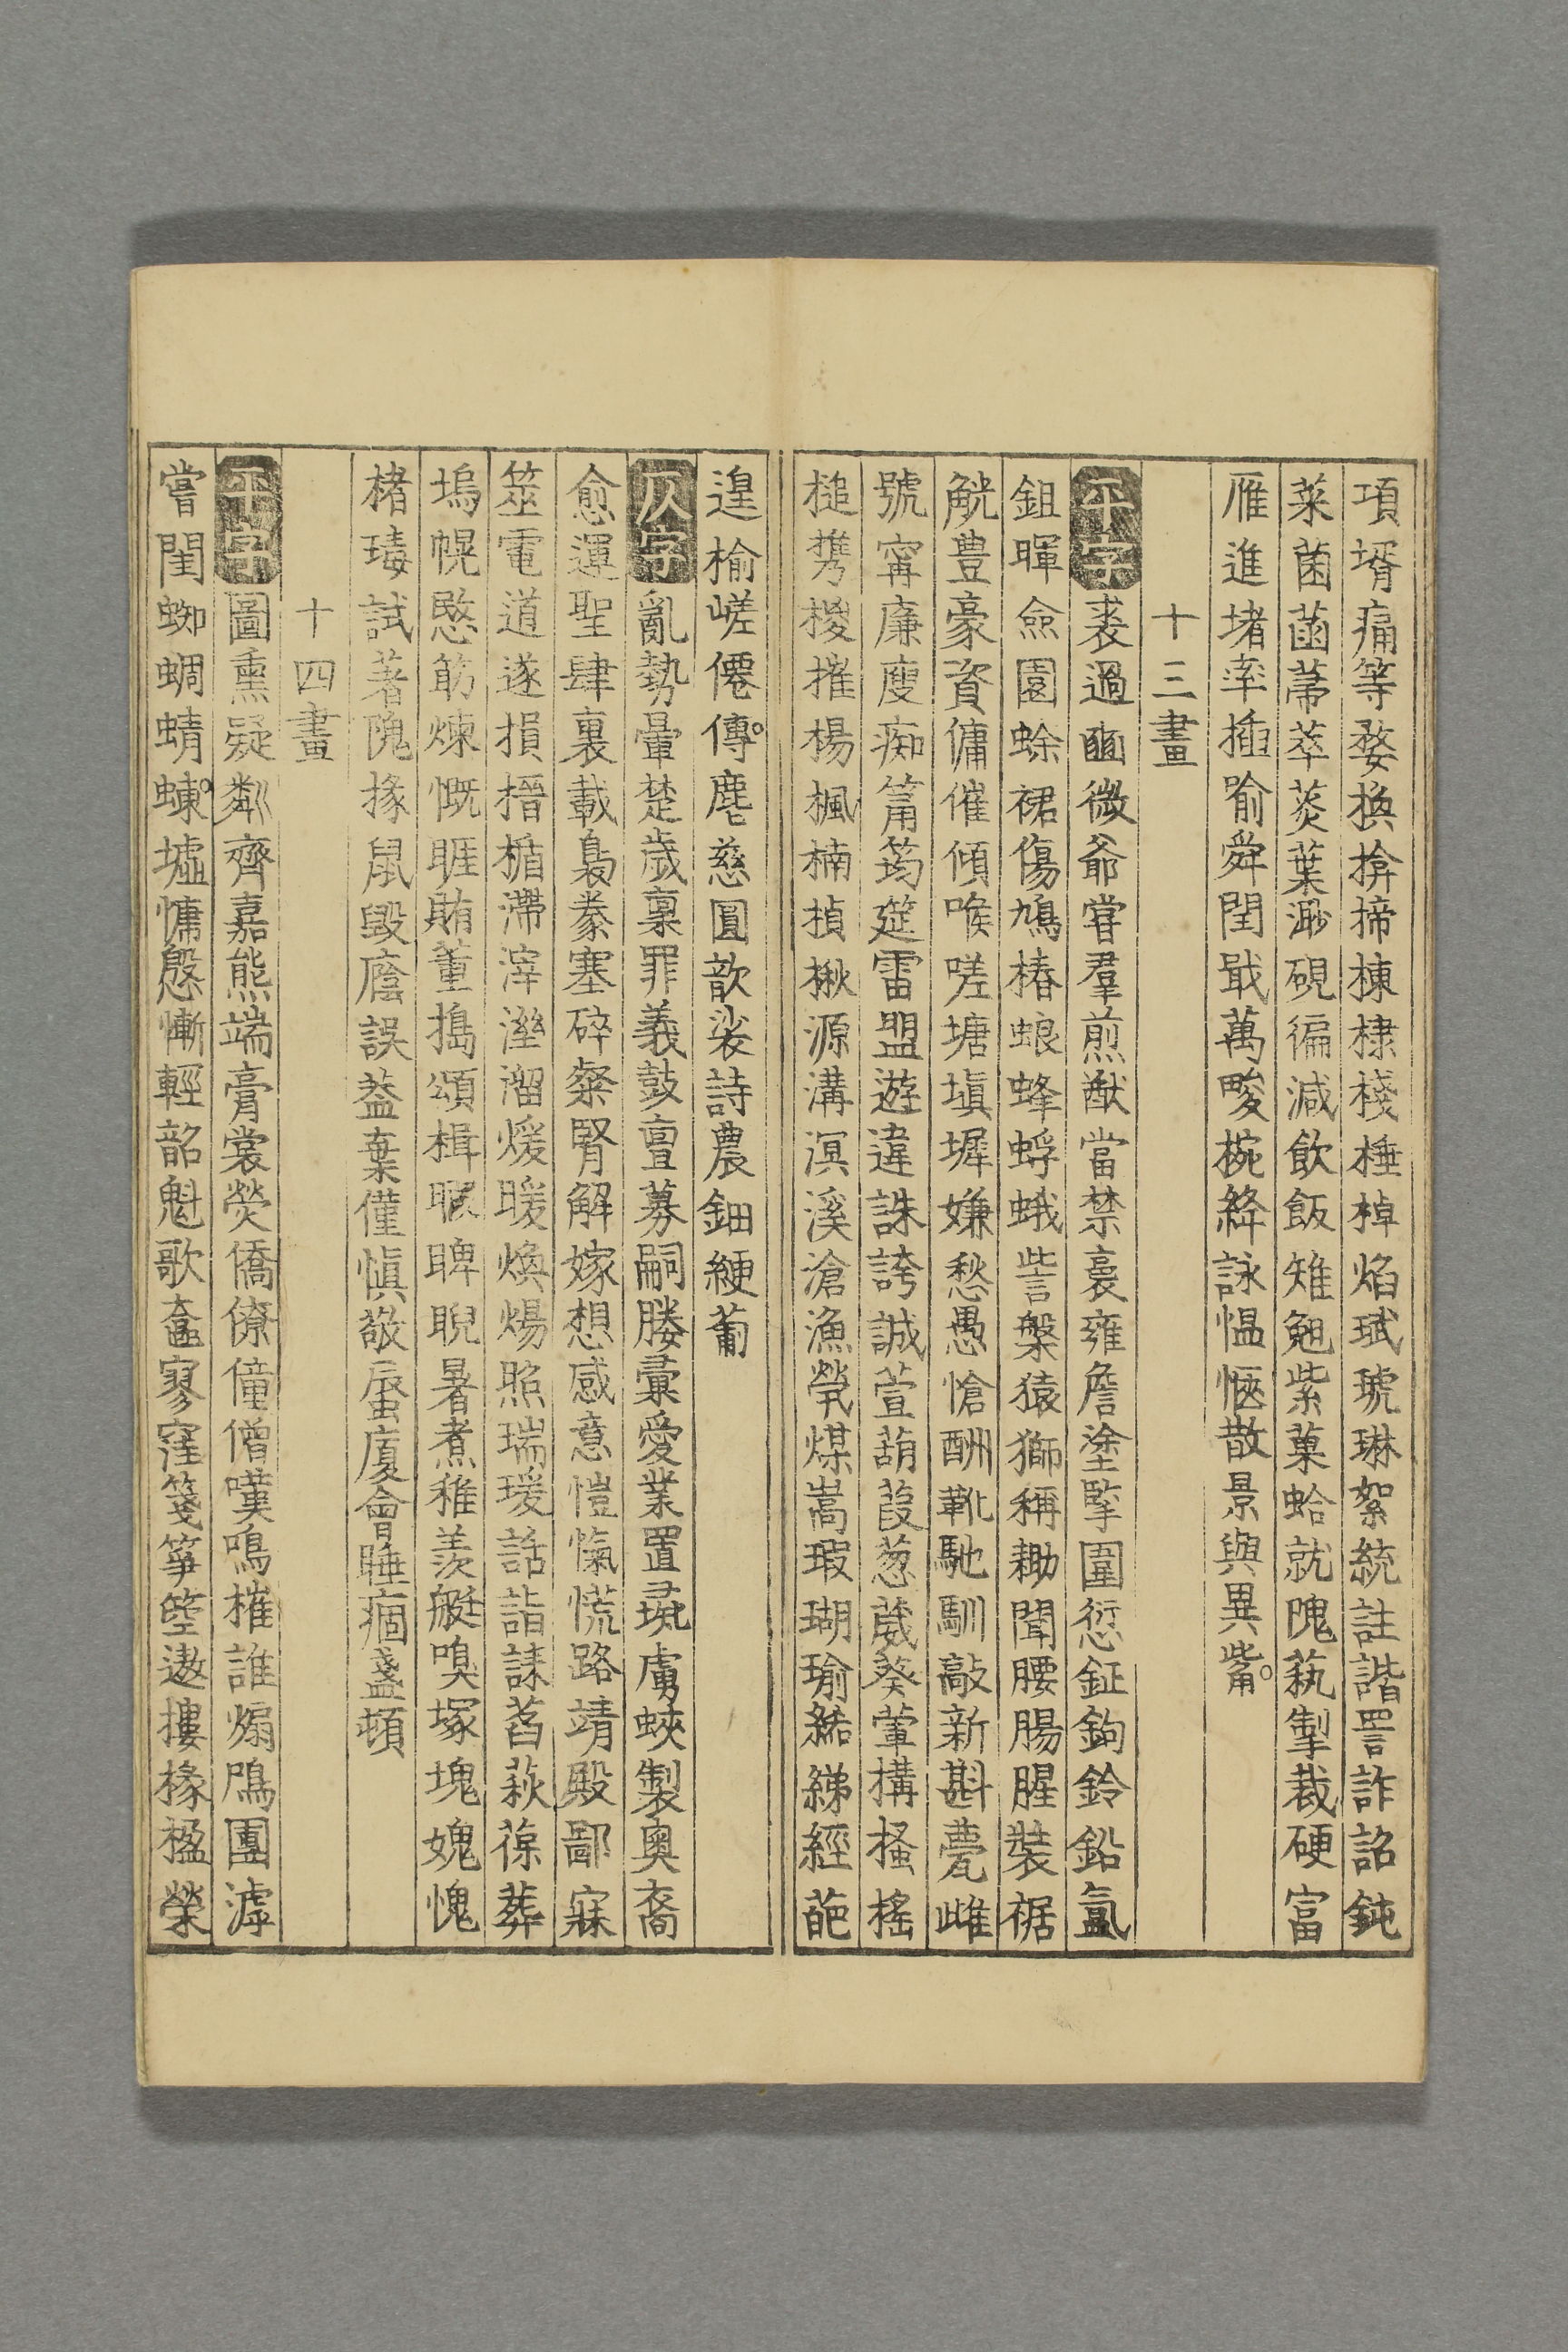 項壻痛等婺換揜揥棟棣棧棰棹焰珷琥琳絮統註諧詈詐詔鈍
菜菌菡芾萃菼葉渺硯徧減飲飯雉兟紫菓蛤就隗蓺掣裁硬富
雁進堵率插喻舜閏戢萬畯椀絳詠愠愜散景與異觜
十三畫
平字裘過畫微爺嘗羣煎猷當禁裛雍詹塗擥圍愆鉦鉤鈴鉛氳
鉏暉僉園蜍裙傷鳩椿蜋蜂蜉蛾訾槃猿獅稱耡閶腰腸腥裝裾
觥豊豪資傭催傾喉嗟塘塡墀嫌愁愚愴酬靴馳馴敲新斟甍雌
號甯廉廋痴筩筠筵雷盟遊違誅誇誠萱葫葭葱葳葵葷構搔榣
槌携椶摧楊楓楠楨楸源溝溟溪滄漁煢煤嵩瑕瑚瑜絺綈經葩
遑榆嵯僊傳塵慈圓歆裟詩農鈿綆葡
仄字亂勢暈楚歲稟罪義鼓亶募嗣媵彙愛業置毳虜蛺製奧裔
愈運聖肆裏載裊豢塞碎粲腎解嫁想感意愷愾慌路靖殿鄙寐
筮電道遂損搢楯滯滓溼溜煖暖煥煬照瑞瑗話詣誄萏萩葆葬
塢幌愍筯煉慨睚賄董搗頌楫暇睥睨暑煮稚羨艇嗅塚塊媿愧
楮瑇試著隗掾鼠毀廕誤葢棄僅愼敬蜃廈會睡痼盞頓
十四畫
平字圖熏疑鄰齊嘉熊端膏裳熒僑僚僮僧嘆鳴摧誰煽鳲團滹
嘗閨蜘蜩蜻蝀墟慵慇慚輕韶魁歌奩寥窪箋箏箜遨摟椽楹榮